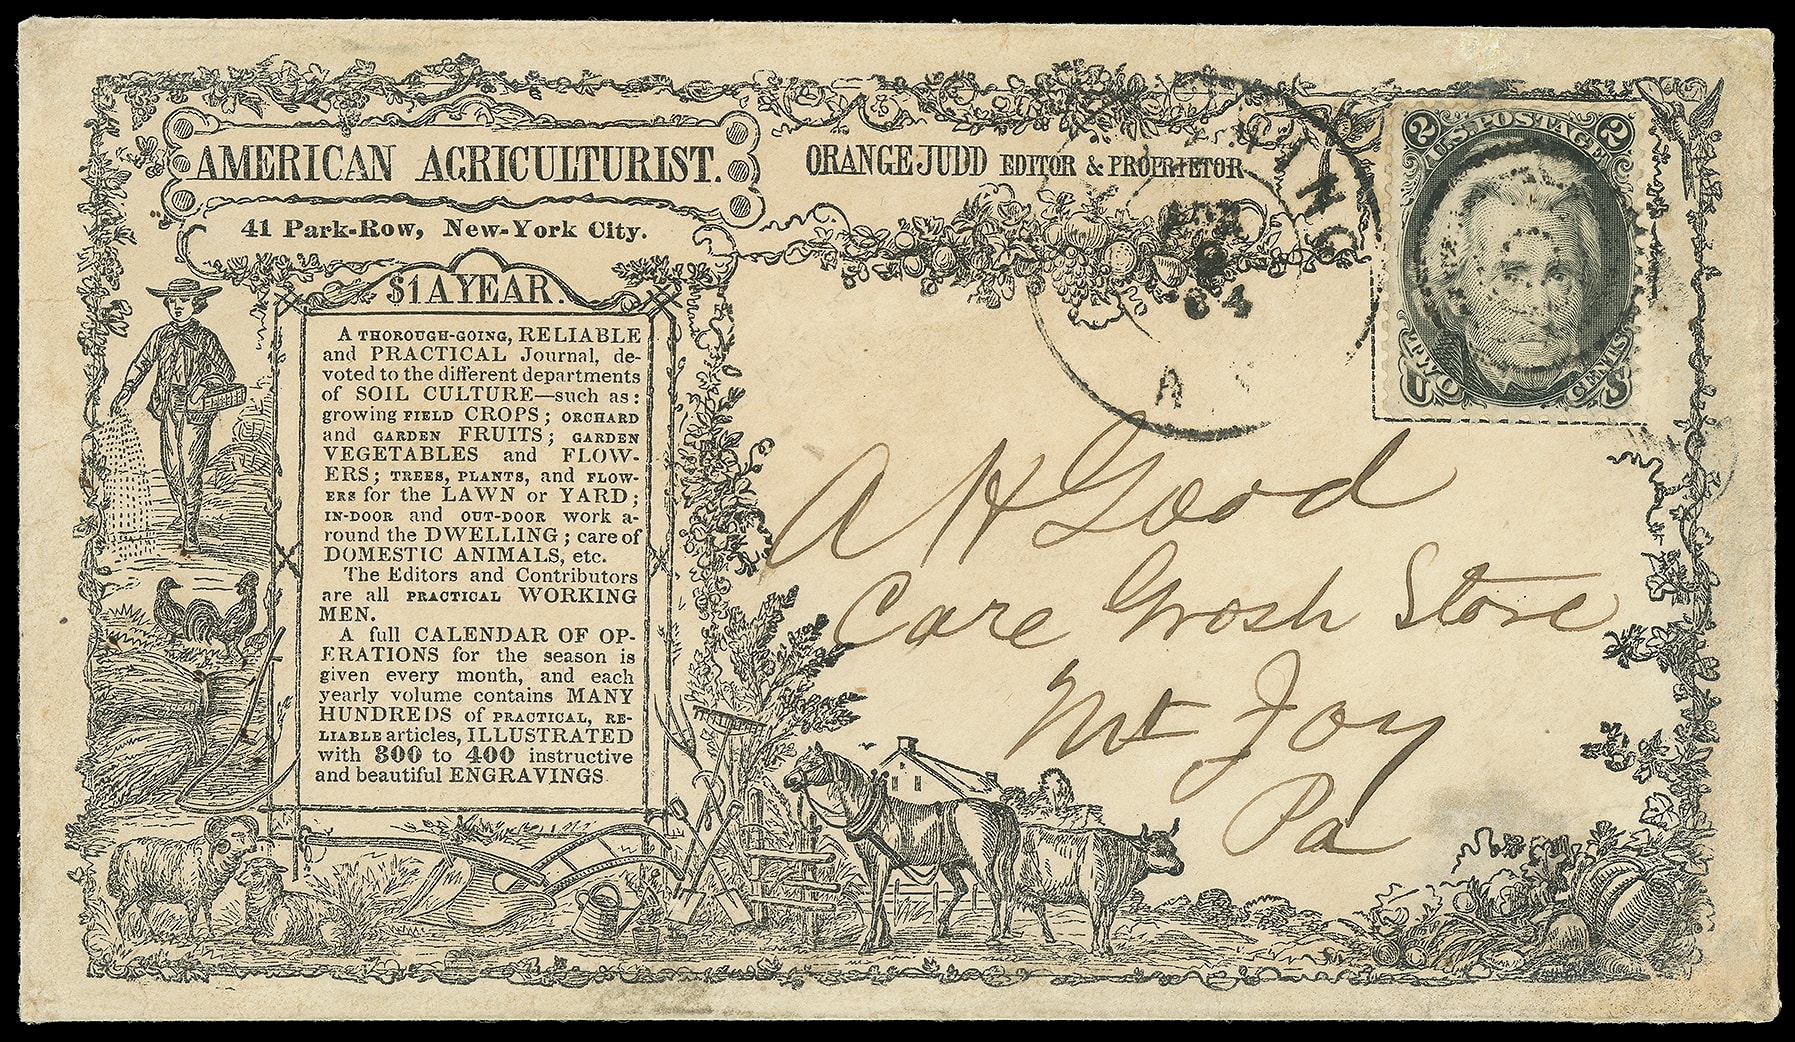 AMERICAN AGRICULTURIST.
ORANGE JUDD EDITOR & PROPRIETOR
41 Park-Row, New-York City.
$1 A YEAR.
A THOROUGH-GOING, RELIABLE
and PRACTICAL Journal, de-
voted to the different departments
of SOIL CULTURE—such as:
growing FIELD CROPS; ORCHARD
and GARDEN FRUITS; GARDEN
VEGETABLES and FLOW-
ERS; TREES, PLANTS, and FLOW-
ERS for the LAWN or YARD;
IN-DOOR and OUT-DOOR work a-
round the DWELLING; care of
DOMESTIC ANIMALS, etc.
The Editors and Contributors
are all PRACTICAL WORKING
MEN.
A full CALENDAR OF OP-
ERATIONS for the season is
given every month, and each
yearly volume contains MANY
HUNDREDS of PRACTICAL, RE-
LIABLE articles, ILLUSTRATED
with 300 to 400 instructive
and beautiful ENGRAVINGS
2 U.S. POSTAGE 2
TWO CENTS
U S
64
A H Good
Care Grosh Store
Mt Joy
Pa